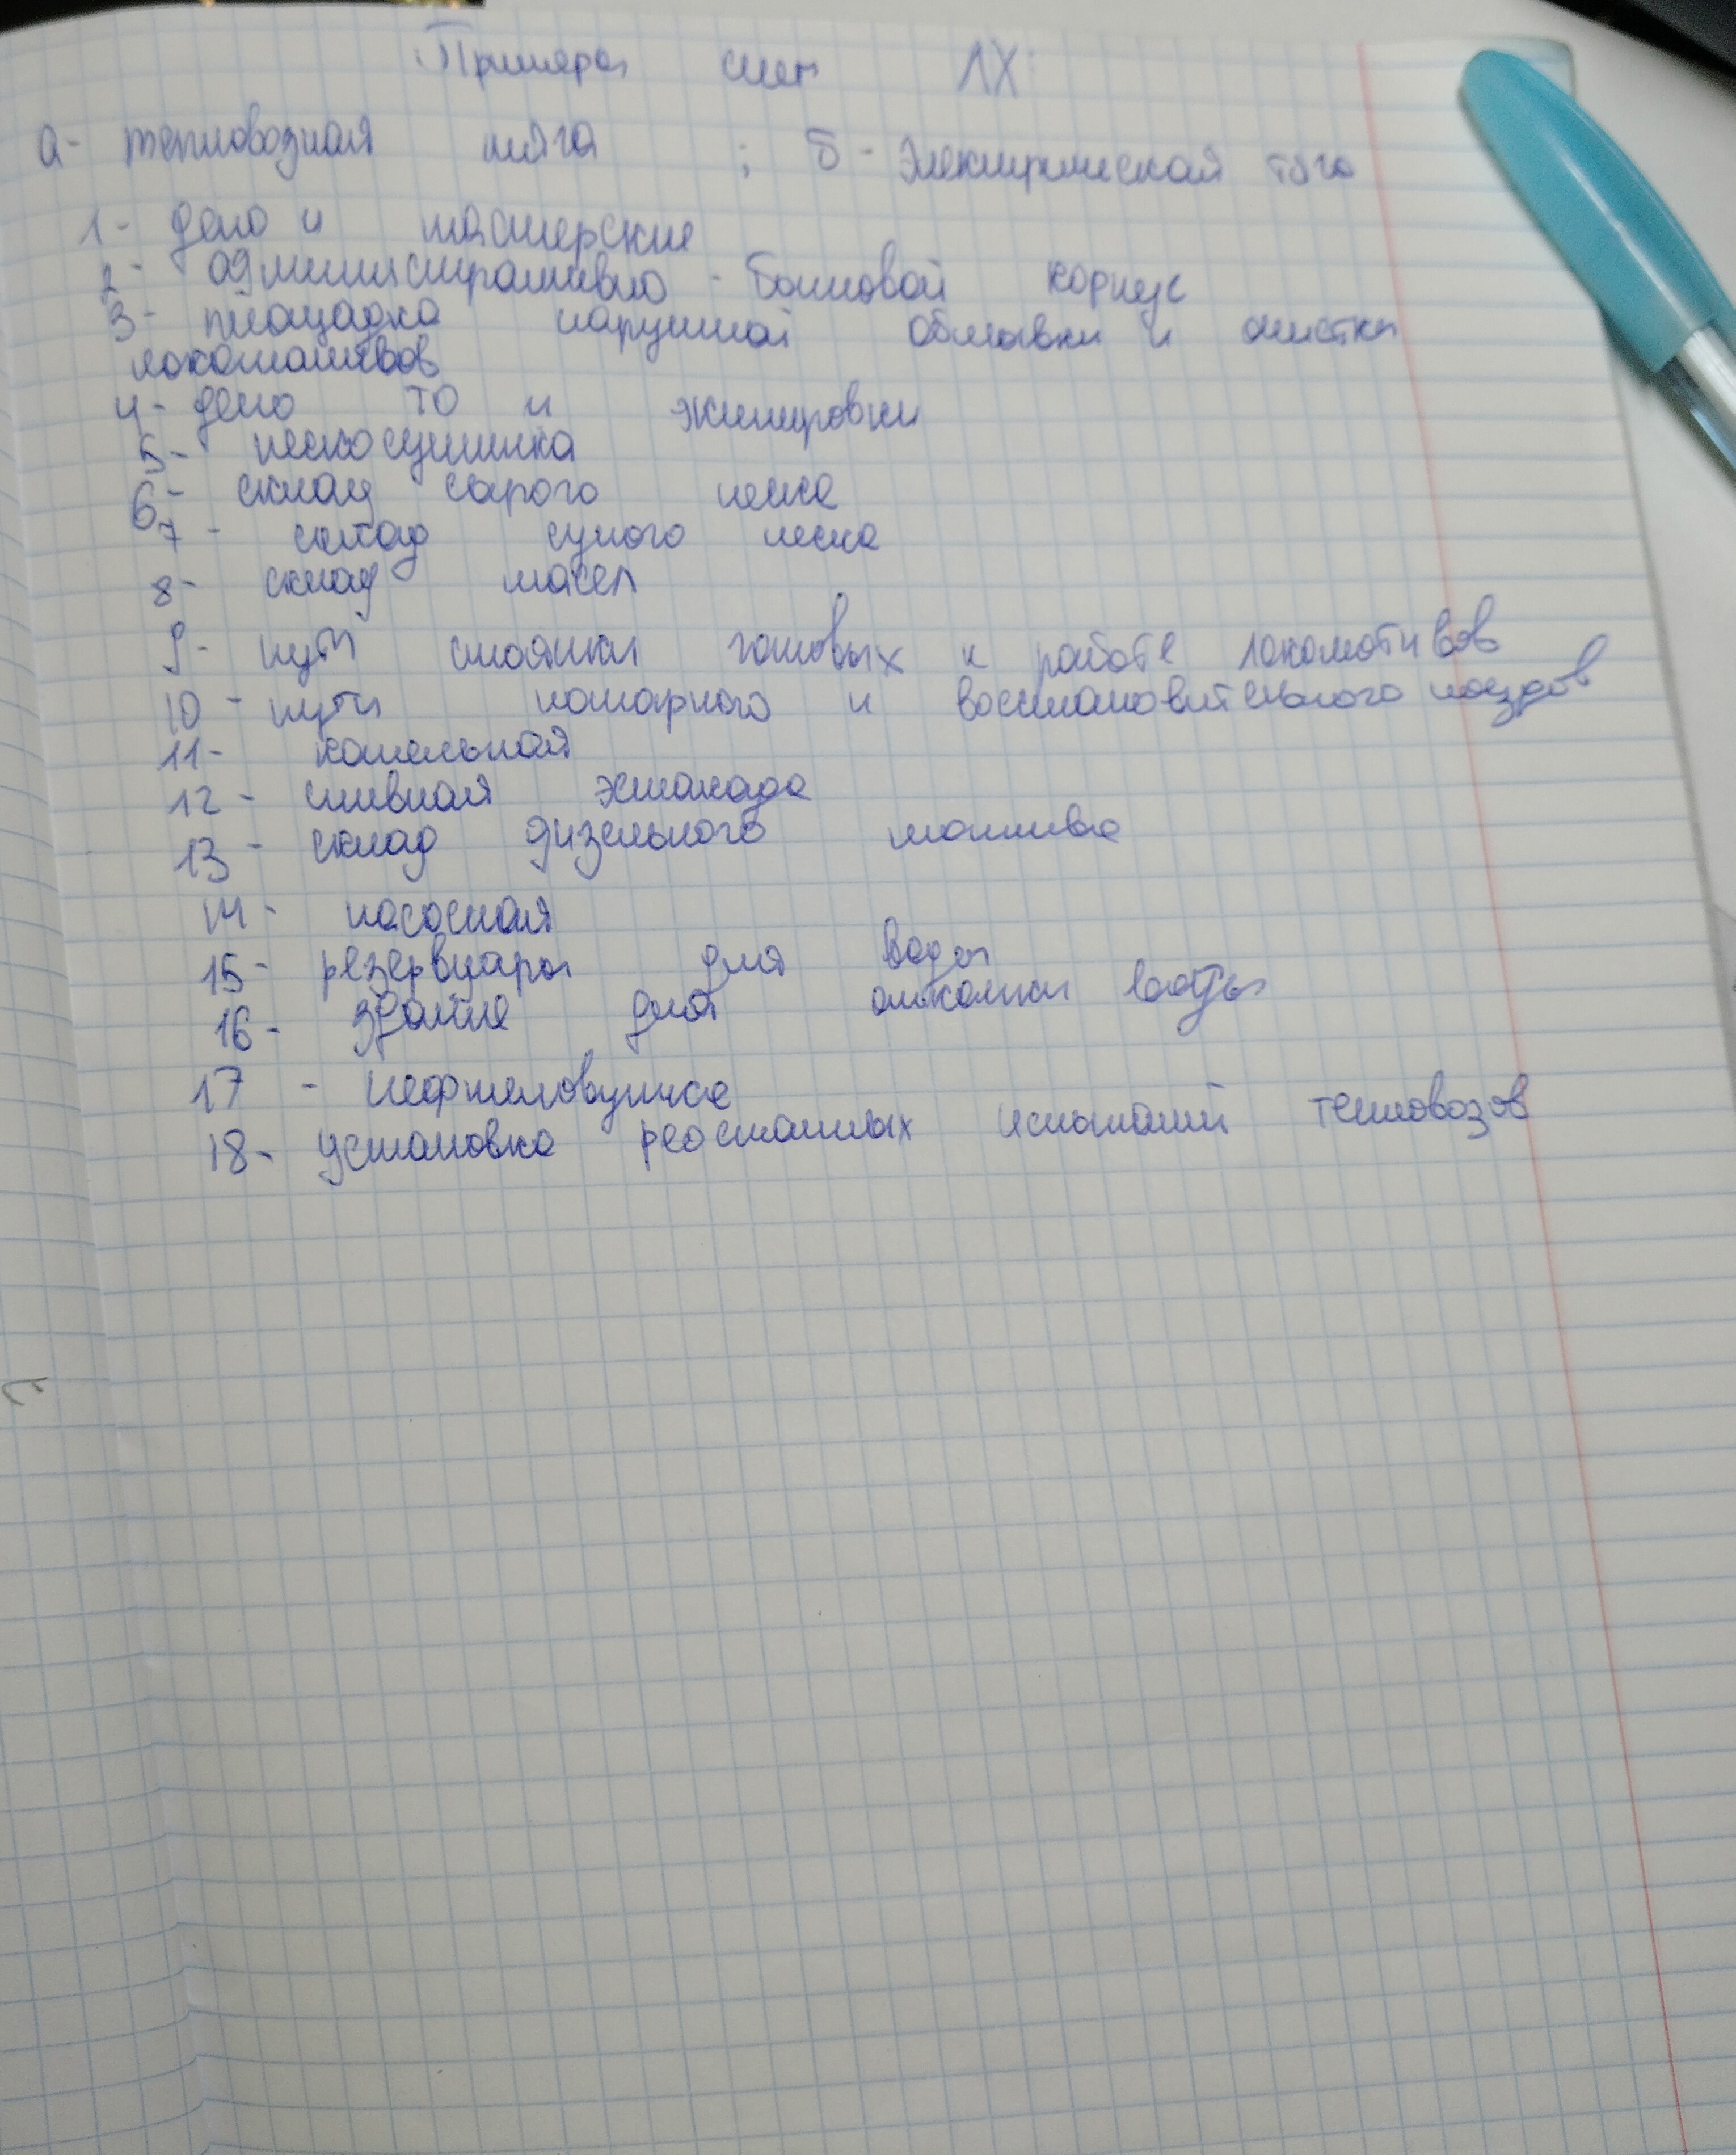 Примеры схем ЛХ:
а- тепловозная тяга ; б - Электрической тяга
1- депо и мастерские
2- административно - бытовой корпус
3- площадка наружной обмывки и очистки
локомотивов
4- депо ТО и экипировки
5- пескосушилка
6- склад сырого песка
7- склад сухого песка
8- склад масел
9- пути стоянки готовых к работе локомотивов
10- пути пожарного и восстановительного поездов
11- котельная
12- сливная эстакада
13- склад дизельного топлива
14- насосная
15- резервуары для воды
16- здание для откачки воды
17 - нефтеловушка
18- установка реостатных испытаний тепловозов